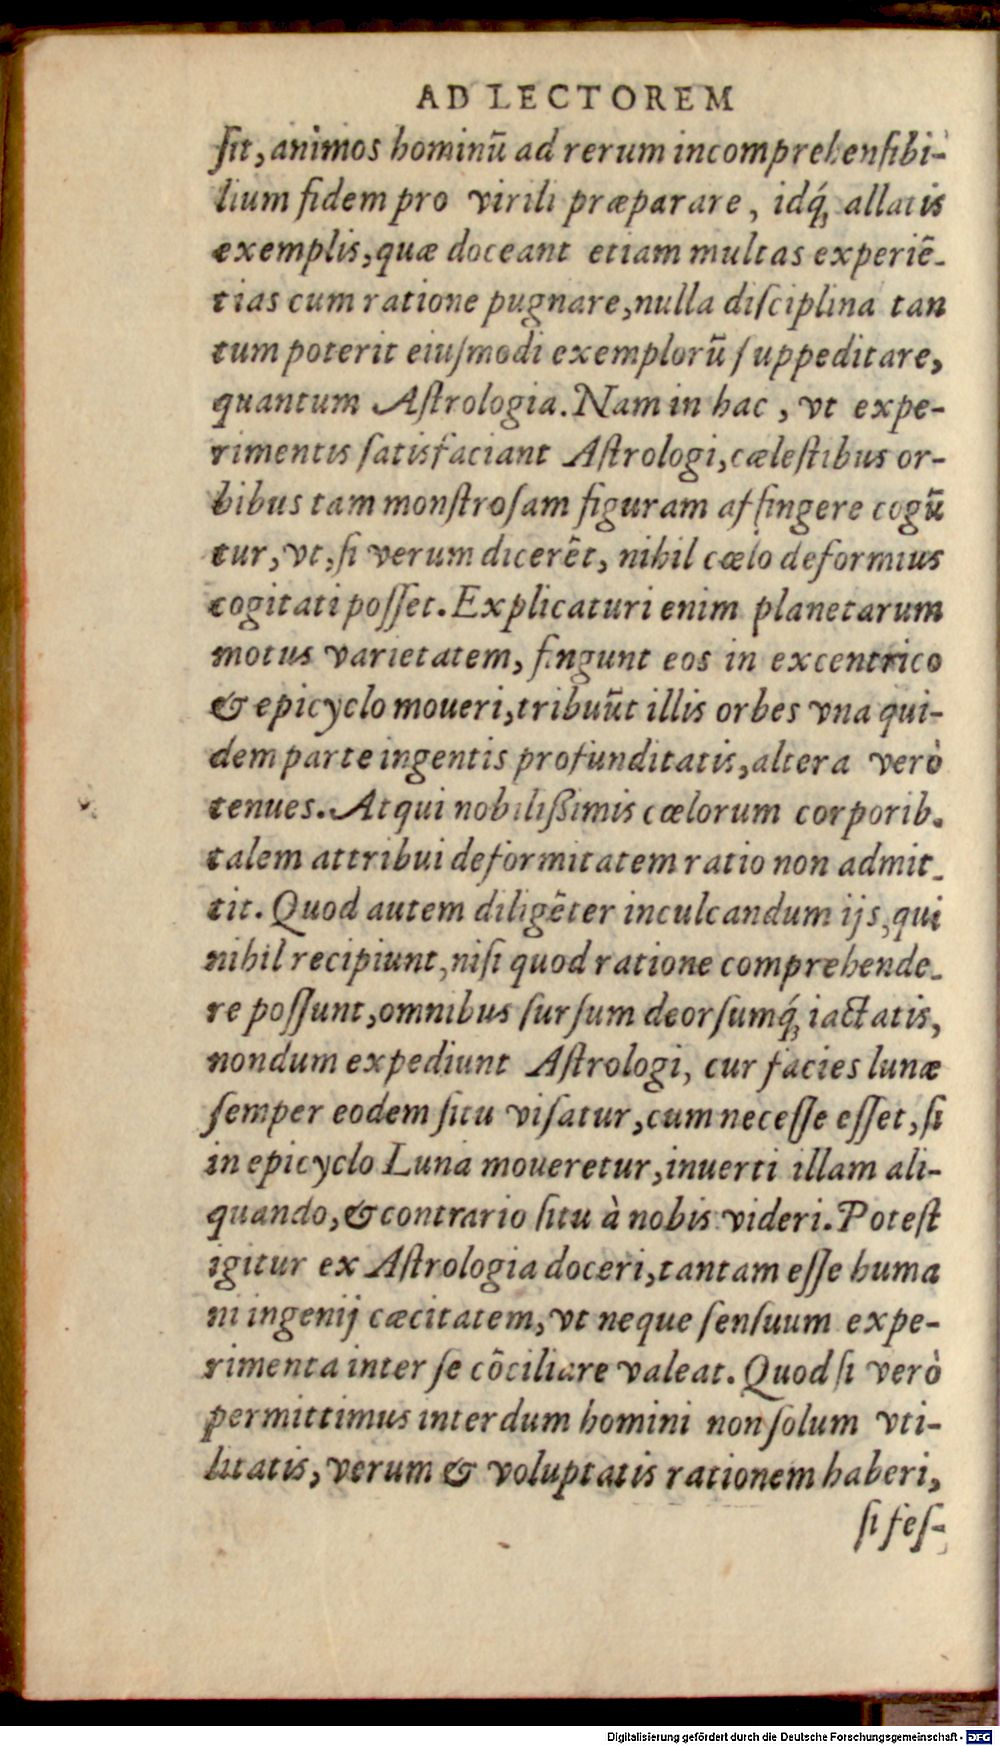 AD LECTOREM
ſit, animos hominū ad rerum incomprehenſibi-
lium fidem pro virili præparare, idq́; allatis
exemplis, quæ doceant etiam multas experiē-
tias cum ratione pugnare, nulla diſciplina tan
tum poterit eiuſmodi exemplorū ſuppeditare,
quantum Aſtrologia. Nam in hac, vt expe-
rimentis ſatisfaciant Aſtrologi, cæleſtibus or-
bibus tam monſtroſam figuram affingere cogū
tur, vt, ſi verum dicerēt, nihil cœlo deformius
cogitati poſſet. Explicaturi enim planetarum
motus varietatem, fingunt eos in excentrico
& epicyclo moueri, tribuūt illis orbes vna qui-
dem parte ingentis profunditatis, altera verò
tenues. Atqui nobilißimis cœlorum corporib.
talem attribui deformitatem ratio non admit-
tit. Quod autem diligēter inculcandum ijs, qui
nihil recipiunt, niſi quod ratione comprehende-
re poſſunt, omnibus ſurſum deorſumq́; iactatis,
nondum expediunt Aſtrologi, cur facies lunæ
ſemper eodem ſitu viſatur, cum neceſſe eſſet, ſi
in epicyclo Luna moueretur, inuerti illam ali-
quando, & contrario ſitu à nobis videri. Poteſt
igitur ex Aſtrologia doceri, tantam eſſe huma
ni ingenij cæcitatem, vt neque ſenſuum expe-
rimenta inter ſe cōciliare valeat. Quod ſi verò
permittimus interdum homini non ſolum vti-
litatis, verum & voluptatis rationem haberi,
ſi feſ-
Digitalisierung gefördert durch die Deutsche Forschungsgemeinschaft - DFG